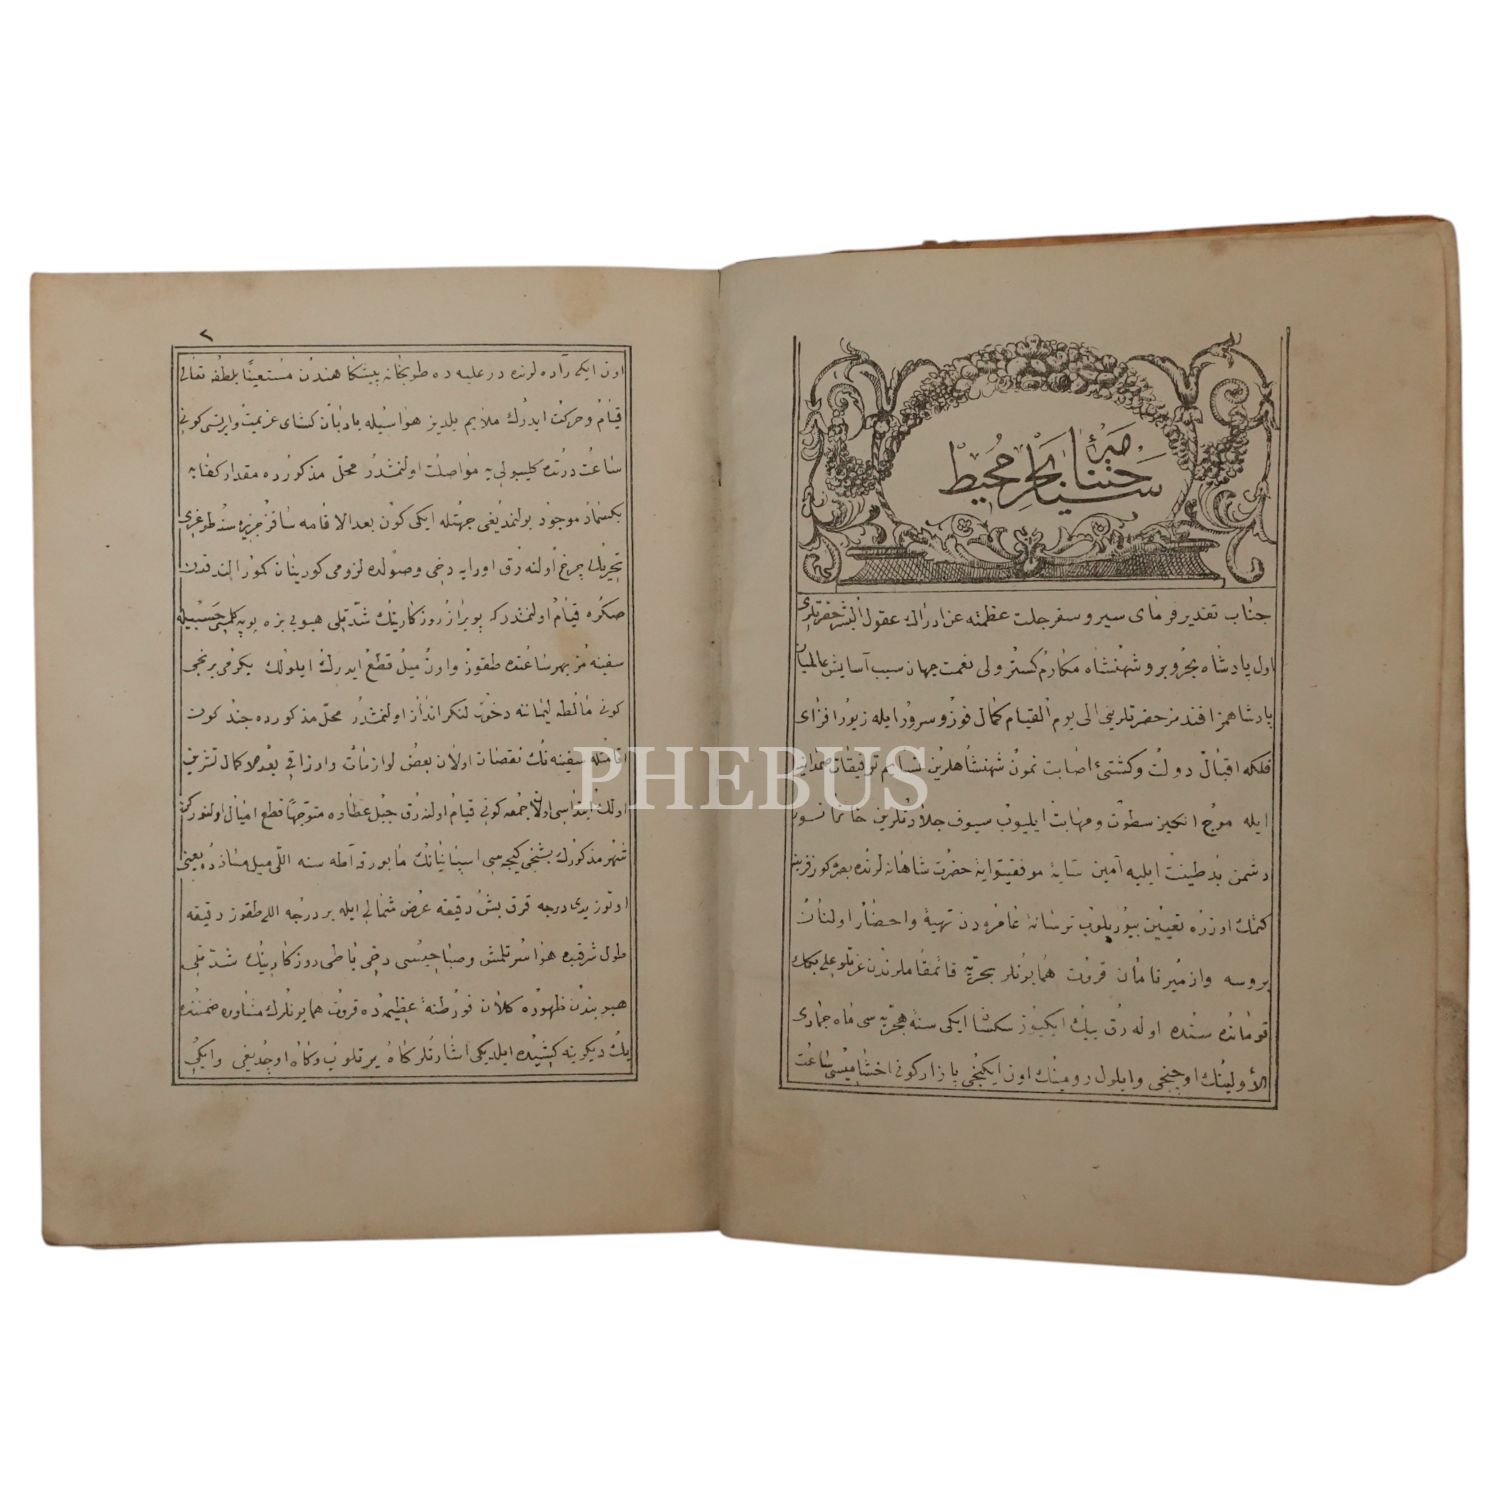 سياحتنامۀ بحر محيط
جناب تقدیر فرمای سیر و سفر جلت عظمته عن ادراك عقول البشر حضرتلری
اول پادشاه بحر و بر و شهنشاه مكارم كستر ولی نعمت جهان سبب آسایش عالمیان
پادشاهمز افندمز حضرتلرینی الی یوم القیام كمال فوز و سرور ایله زیور افزای
فلكه اقبال دولت و كشتئ اصابت نمون شهنشاهلرین نسایم توفیقات صمدانی
ایله موج انكیز سطوت و مهابت ایلیوب سیوف جلادتلرین
دشمن بد طینت ایلیه آمین سایۀ موفقیتوایۀ حضرت شاهانه لرنده بصره كورفزینه
كتمك اوزره تعیین بیوریلوب ترسانۀ عامره دن تهیه و احضار اولنان
بروسه وازمیر نامان قروت همایونلر بحریه قائمقاملرندن عزتلو علی بك
قومانده سنده اوله رق بیك ایكیوز سكسان ایكی سنۀ هجریه سی ماه جمادی
الأولینك اوچنجی و ایلول رومینك اون ایكنجی پازار كونی اخشامیسی ساعت
٢
اون ایكی راده لرنده در علیه ده طوپخانه پیشكاهندن مستعیناً بلطفه تعالی
قیام و حركت ایدرك ملایم یلدیز هواسیله بادبان كشای عزیمت و ایرتسی كونی
ساعت درتده كلیبولی یه مواصلت اولنمشدر محل مذكورده مقدار كفایه
بكسماد موجود بولندیغی جهتله ایكی كون بعد الاقامه ساقز جزیره سنه طوغری
تحریك چرخ اولنه رق اورایه دخی وصولده لزومی كورینان كمور آلندقدن
صكره قیام اولنمشدر كه پویراز روزكارینك شدتلی هبوبی بزه یویه كلمسی حسبیله
سفینه مز بهر ساعتده طقوز و اون میل قطع ایدرك ایلولك یكرمی برنجی
كونی مالطه لیماننه دخول لنكر انداز اولنمشدر محل مذكورده چند كون
اقامتله سفینه نك نقصان اولان بعض لوازمات و ارزاقی بعد الاكمال تشرین
اولك ابتداسی اولان جمعه كونی قیام اولنه رق جبل عطاره متوجهاً قطع امیال اولنوركن
شهر مذكورك بشنجی كیجه سی اسپانیانك مایورقه آطه سنه اللی میل مسافه ده یعنی
اوتوز یدی درجه قرق بش دقیقه عرض شمالی ایله بر درجه اللی طقوز دقیقه
طول شرقیده هوا سرتلمش و صباحیسی دخی باطی روزكارینك شدتلی
هبوبندن ظهوره كلان فورطنۀ عظیمه ده قروت همایونلرك مشاوره ضمننده
یك دیكرینه كشیده ایلدیكی اشارتلر كاه یرتلوب وكاه اوچدیغی و ایكی
PHEBUS